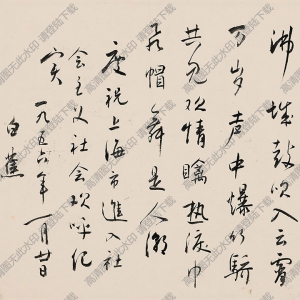 沸城鼓吹入云霄
万岁声中爆竹骄
共见欢情腾热度巾
飞帽舞是人潮
庆祝上海市進入社
会主义社会欢呼纪
实
一九五六年一月廿日
白蕉